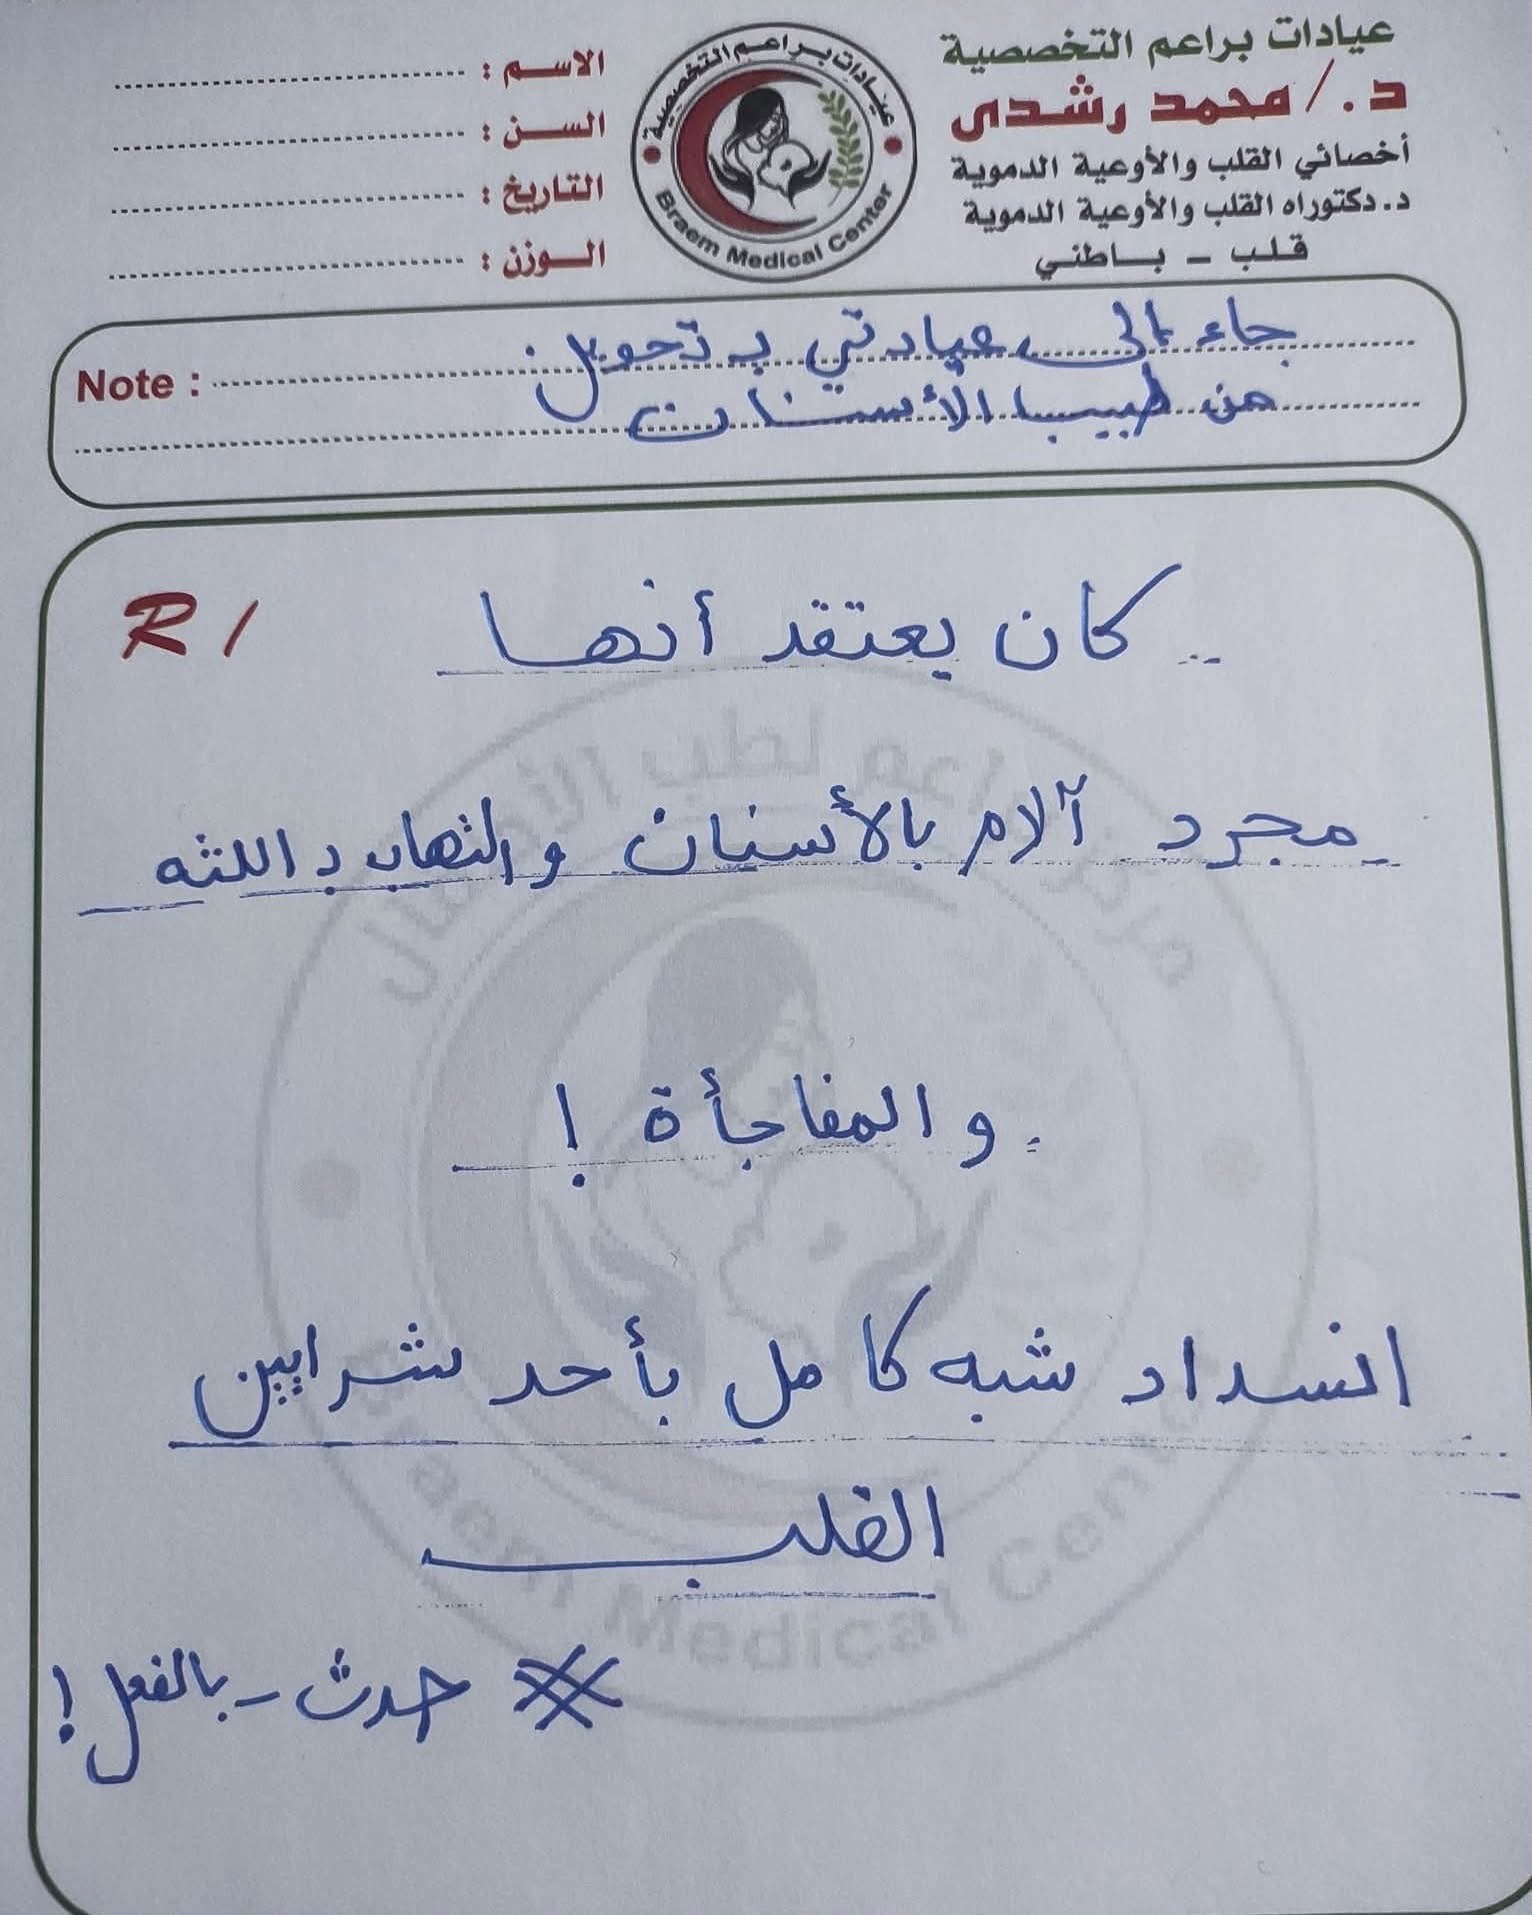 عيادات براعم التخصصية
د./محمد رشدى
أخصائي القلب والأوعية الدموية
د.دكتوراه القلب والأوعية الدموية
قلب - باطني
عيادات براعم التخصصية
Braem Medical Center
الاسم :
السن :
التاريخ :
الوزن :
Note :
جاء إلى عيادتي بـ تحويل
من طبيب الأسنان
R/
.. كان يعتقد أنها
مجرد آلام بالأسنان والتهاب بـ اللثه
والمفاجأة !
انسداد شبه كامل بأحد شرايين
القلب
# حدث - بالفعل !
مركز براعم لطب الأطفال
Braem Medical Center